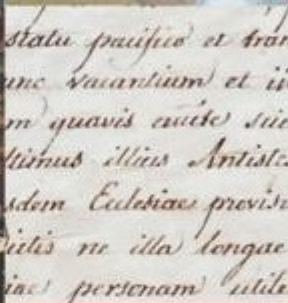 statu pacifico et tran
unc vacantium et ii
m quavis
ltimus illius Antistes
sdem Ecclesiae provis
ictis ne illa longae
iae personam utile